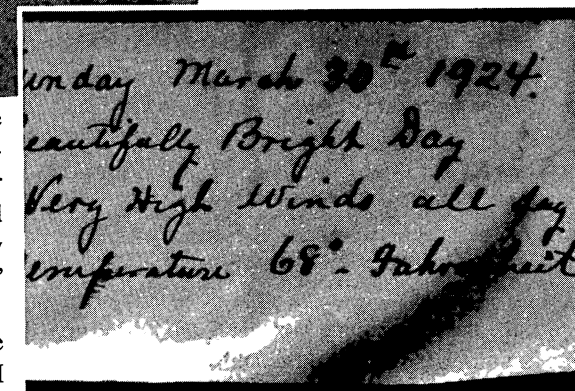 unday March 30th 1924.
eautifully Bright Day
Very High Winds all day
emperature 68°- Fahrenheit